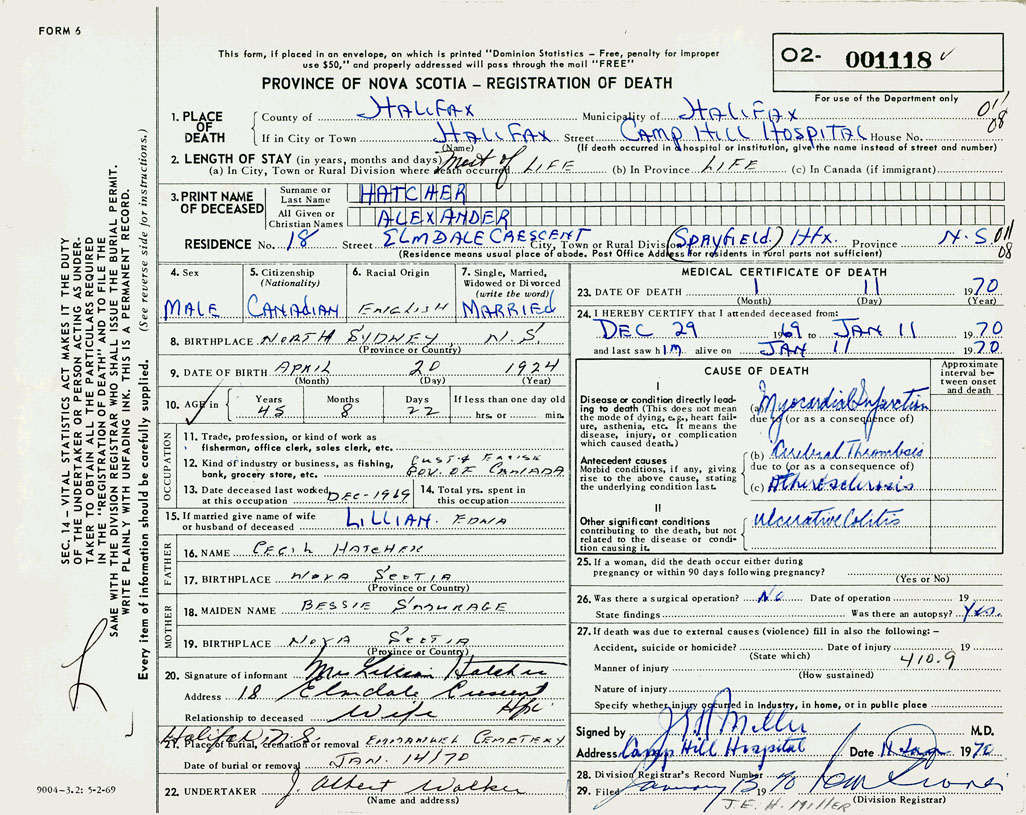 FORM 6
This form, if placed in an envelope, on which is printed "Dominion Statistics – Free, penalty for improper
use $50," and properly addressed will pass through the mail "FREE"
PROVINCE OF NOVA SCOTIA – REGISTRATION OF DEATH
O2- 001118 ✓
For use of the Department only
011
08
1. PLACE OF DEATH
County of HALIFAX Municipality of HALIFAX
If in City or Town HALIFAX Street CAMP HILL HOSPITAL House No.
(Name) (If death occurred in a hospital or institution, give the name instead of street and number)
2. LENGTH OF STAY (in years, months and days)
(a) In City, Town or Rural Division where death occurred Most of LIFE (b) In Province LIFE (c) In Canada (if immigrant)
3. PRINT NAME OF DECEASED
Surname or Last Name HATCHER
All Given or Christian Names ALEXANDER
RESIDENCE No. 18 Street ELMDALE CRESCENT City, Town or Rural Division (SPRYFIELD) Hfx. Province N.S. 011
08
(Residence means usual place of abode. Post Office Address for residents in rural parts not sufficient)
4. Sex MALE
5. Citizenship (Nationality) CANADIAN
6. Racial Origin ENGLISH
7. Single, Married, Widowed or Divorced (write the word) MARRIED
8. BIRTHPLACE NORTH SYDNEY N.S.
(Province or Country)
9. DATE OF BIRTH APRIL 20 1924
(Month) (Day) (Year)
10. AGE in Years 45 Months 8 Days 22 If less than one day old hrs. or min.
OCCUPATION
11. Trade, profession, or kind of work as
fisherman, office clerk, sales clerk, etc.
12. Kind of industry or business, as fishing,
bank, grocery store, etc. CUST & EXCISE
GOV. OF CANADA
13. Date deceased last worked at this occupation DEC-1969
14. Total yrs. spent in this occupation
15. If married give name of wife
or husband of deceased LILLIAN EDNA
FATHER
16. NAME CECIL HATCHER
17. BIRTHPLACE NOVA SCOTIA
(Province or Country)
MOTHER
18. MAIDEN NAME BESSIE
19. BIRTHPLACE NOVA SCOTIA
(Province or Country)
20. Signature of informant Mrs Lillian Hatcher
Address 18 Elmdale Crescent
Hfx
Relationship to deceased Wife
Halifax N.S.
21. Place of burial, cremation or removal EMMANUEL CEMETERY
Date of burial or removal JAN. 14/70
22. UNDERTAKER J. Albert Walker
(Name and address)
MEDICAL CERTIFICATE OF DEATH
23. DATE OF DEATH 1 11 1970
(Month) (Day) (Year)
24. I HEREBY CERTIFY that I attended deceased from:
DEC 29 1969 to JAN 11 1970
and last saw him alive on JAN 11 1970
CAUSE OF DEATH
Approximate interval between onset and death
I
Disease or condition directly leading to death (This does not mean
the mode of dying, e.g., heart failure, asthenia, etc. It means the
disease, injury, or complication
which caused death.)
(a) Myocardial Infarction
due to (or as a consequence of)
Antecedent causes
Morbid conditions, if any, giving
rise to the above cause, stating
the underlying condition last.
(b) Cerebral Thrombosis
due to (or as a consequence of)
(c) Atherosclerosis
II
Other significant conditions
contributing to the death, but not
related to the disease or condition causing it.
Ulcerative Colitis
25. If a woman, did the death occur either during
pregnancy or within 90 days following pregnancy?
(Yes or No)
26. Was there a surgical operation? No Date of operation 19
State findings Was there an autopsy? Yes.
27. If death was due to external causes (violence) fill in also the following: –
Accident, suicide or homicide? Date of injury 19
(State which)
410.9
Manner of injury
(How sustained)
Nature of injury
Specify whether injury occurred in industry, in home, or in public place
Signed by J.E.H. Miller M.D.
Address Camp Hill Hospital Date 11 Jan 1970
28. Division Registrar's Record Number
29. Filed January 13 1970
(Division Registrar)
J.E.H. MILLER
SEC. 14 – VITAL STATISTICS ACT MAKES IT THE DUTY
OF THE UNDERTAKER OR PERSON ACTING AS UNDER-
TAKER TO OBTAIN ALL THE PARTICULARS REQUIRED
IN THE "REGISTRATION OF DEATH" AND TO FILE THE
SAME WITH THE DIVISION REGISTRAR WHO SHALL ISSUE THE BURIAL PERMIT.
WRITE PLAINLY WITH UNFADING INK. THIS IS A PERMANENT RECORD.
Every item of information should be carefully supplied. (See reverse side for instructions.)
9004-3.2: 5-2-69